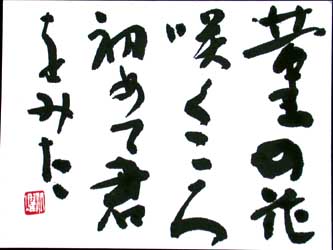 菫の花
咲くころ
初めて君
をみた